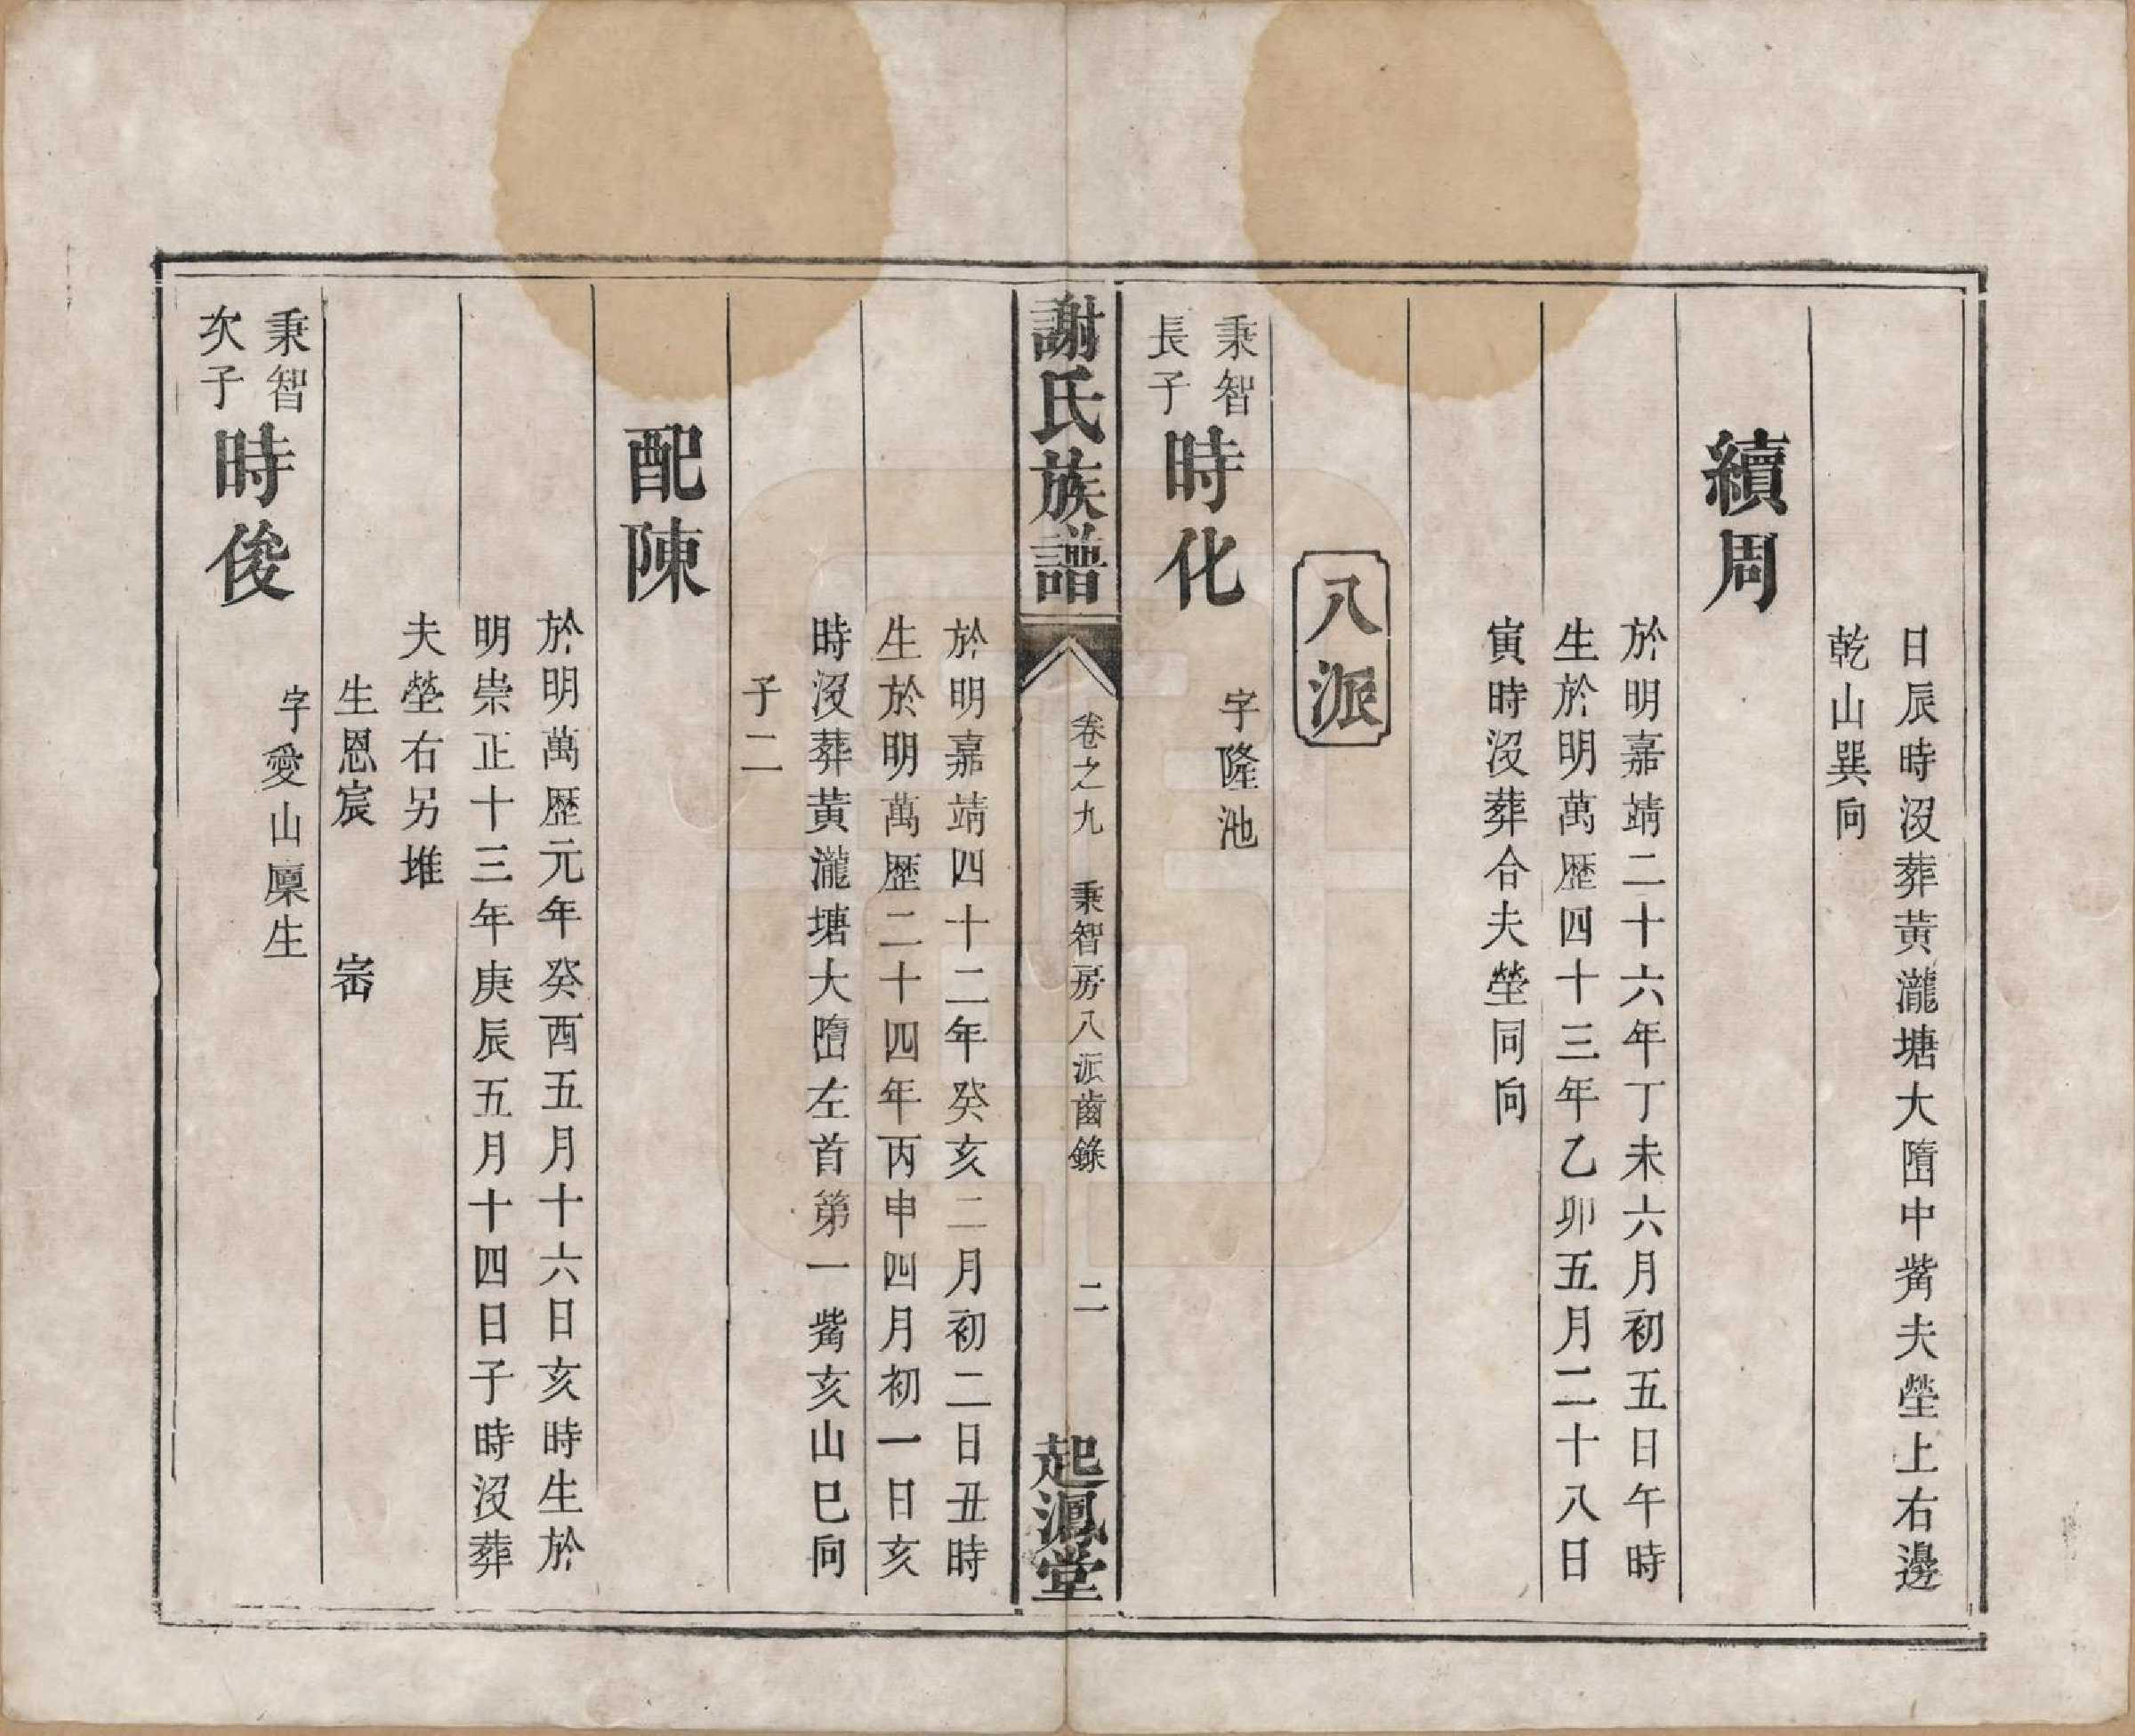 日辰時沒葬黃瀧塘大墮中觜夫塋上右邊
乾山巽向
續周
於明嘉靖二十六年丁未六月初五日午時
生於明萬歷四十三年乙卯五月二十八日
寅時沒葬合夫塋同向
八派
秉智
長子
時化
字隆池
謝氏族譜
卷之九 秉智房八派齒錄
二
起鳳堂
於明嘉靖四十二年癸亥二月初二日丑時
生於明萬歷二十四年丙申四月初一日亥
時沒葬黃瀧塘大墮左首第一觜亥山巳向
子二
配陳
於明萬歷元年癸酉五月十六日亥時生於
明崇正十三年庚辰五月十四日子時沒葬
夫塋右另堆
生恩宸
秉智
次子
時俊
字愛山廩生